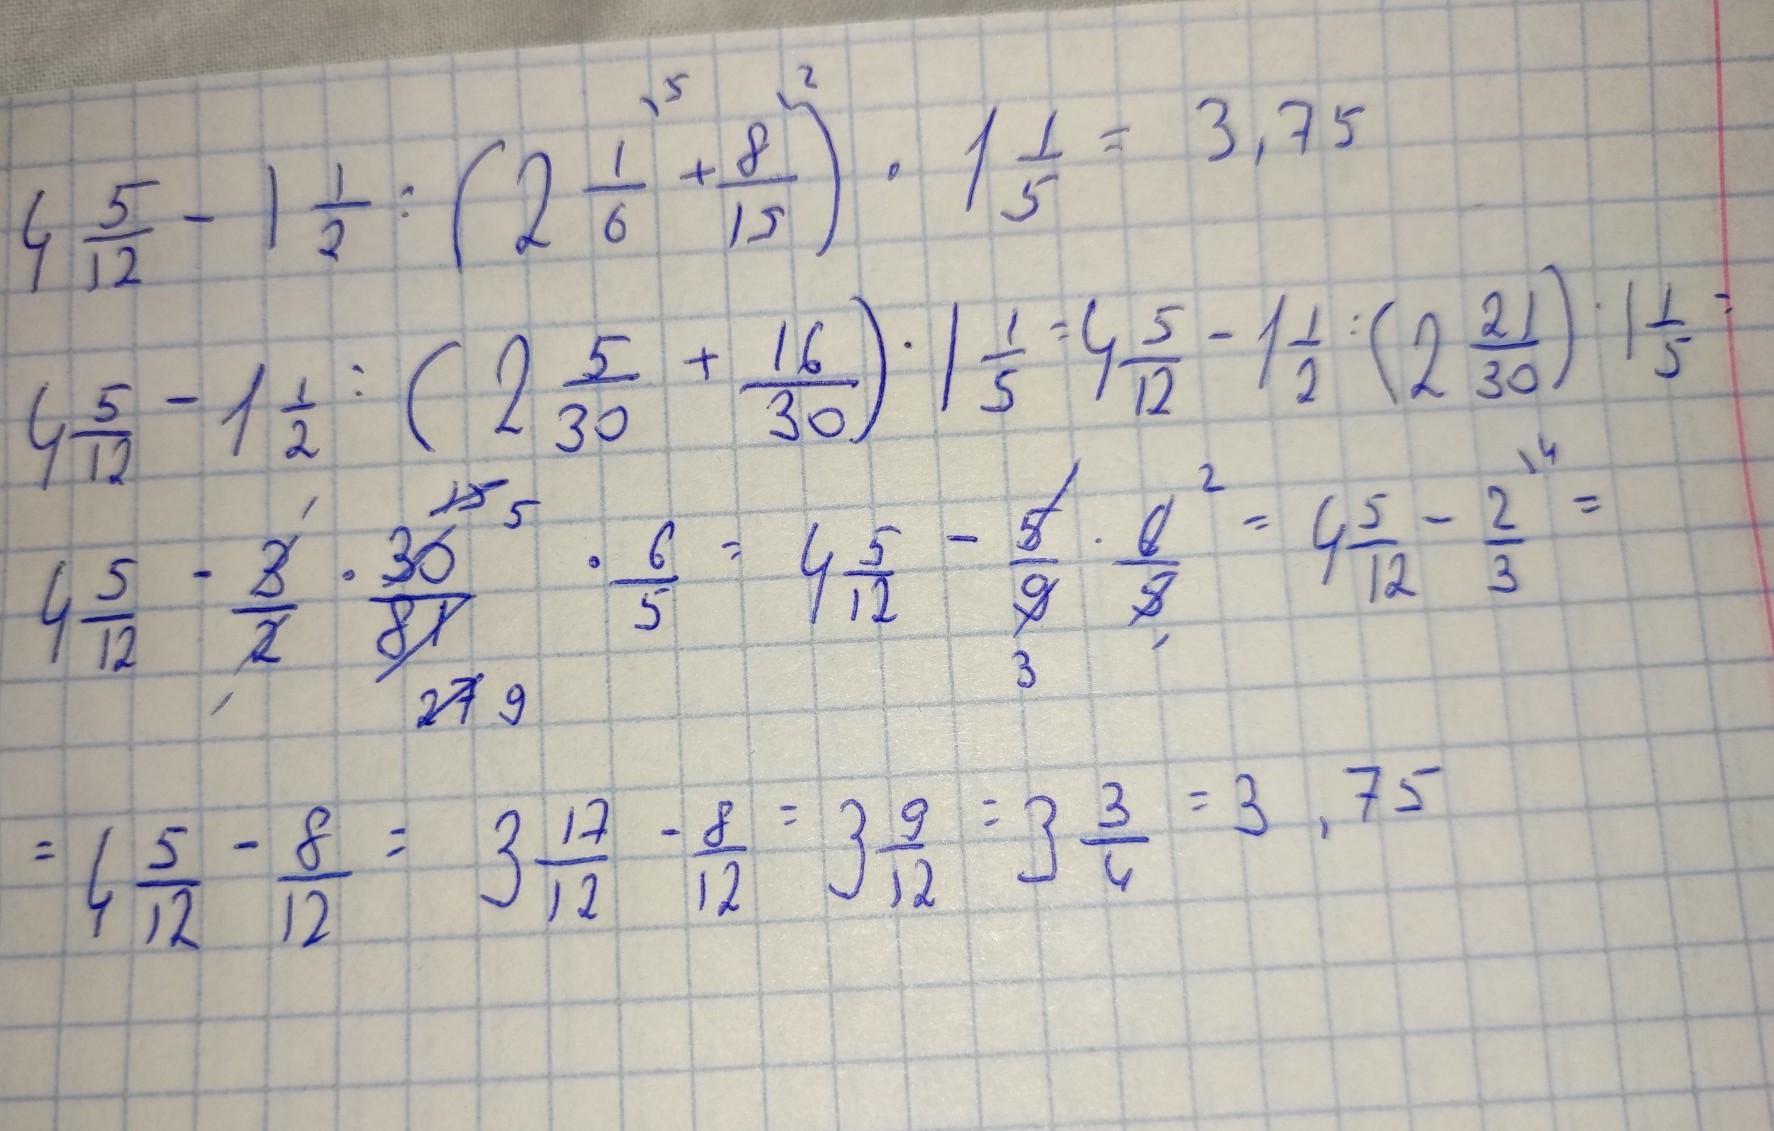 4 5/12 - 1 1/2 : (2 1/6 ^5 + 8/15 ^2) · 1 1/5 = 3,75
4 5/12 - 1 1/2 : (2 5/30 + 16/30) · 1 1/5 = 4 5/12 - 1 1/2 : (2 21/30) · 1 1/5 =
4 5/12 - 3/2 · 30/81 15 5 27 9 · 6/5 = 4 5/12 - 5/9 3 · 6/5 2 = 4 5/12 - 2/3 ^4 =
= 4 5/12 - 8/12 = 3 17/12 - 8/12 = 3 9/12 = 3 3/4 = 3,75